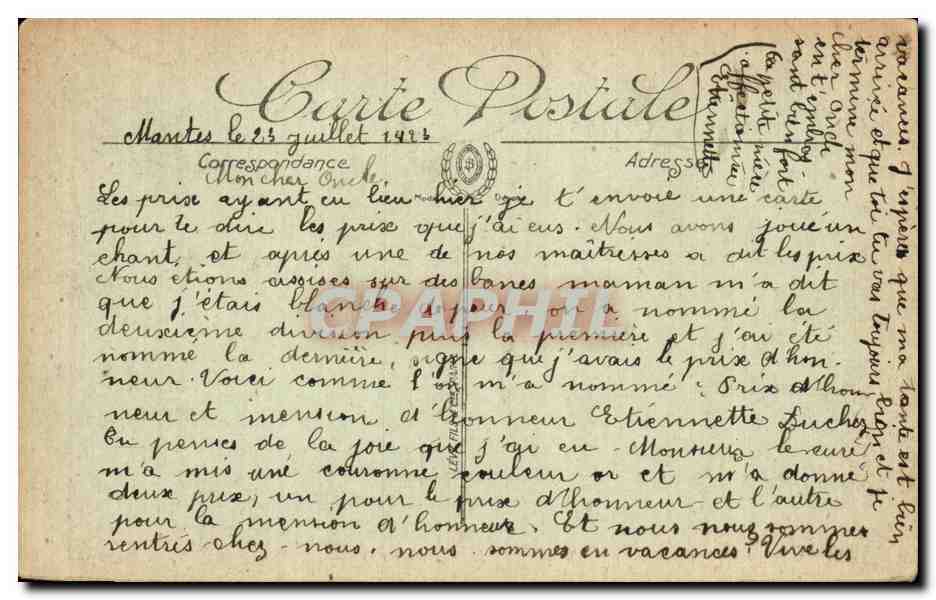 Carte Postale
Mantes le 23 juillet 1923
Correspondance
Adresse
Mon cher Oncle
Les prix ayant eu lieu hier je t'envoie une carte
pour te dire les prix que j'ai eus. Nous avons joué un
chant, et après une de nos maîtresses a dit les prix
Nous etions assises sur des bancs maman m'a dit
que j'étais blanche de peur, on a nommé la
deuxième division puis la première et j'ai été
nommé la dernière, signe que j'avais le prix d'hon-
neur. Voici comme l'on m'a nommé : Prix d'hon-
neur et mension d'honneur Etiennette Duchez
Tu penses de la joie que j'ai eu. Monsieur le curé
m'a mis une couronne couleur or et m'a donné
deux prix, un pour le prix d'honneur et l'autre
pour la mension d'honneur. Et nous nous sommes
rentrés chez-nous. nous sommes en vacances. Vive les
vacances. J'espère que ma tante est bien
arrivée et que toi tu vas toujours bien et je
termine mon
cher Oncle
en t'embras-
sant bien fort
Ta petite nièce
affectionnée
Etiennette
CPAPHIL